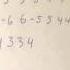 -6 6-5 5 4 4
4 3 3 4